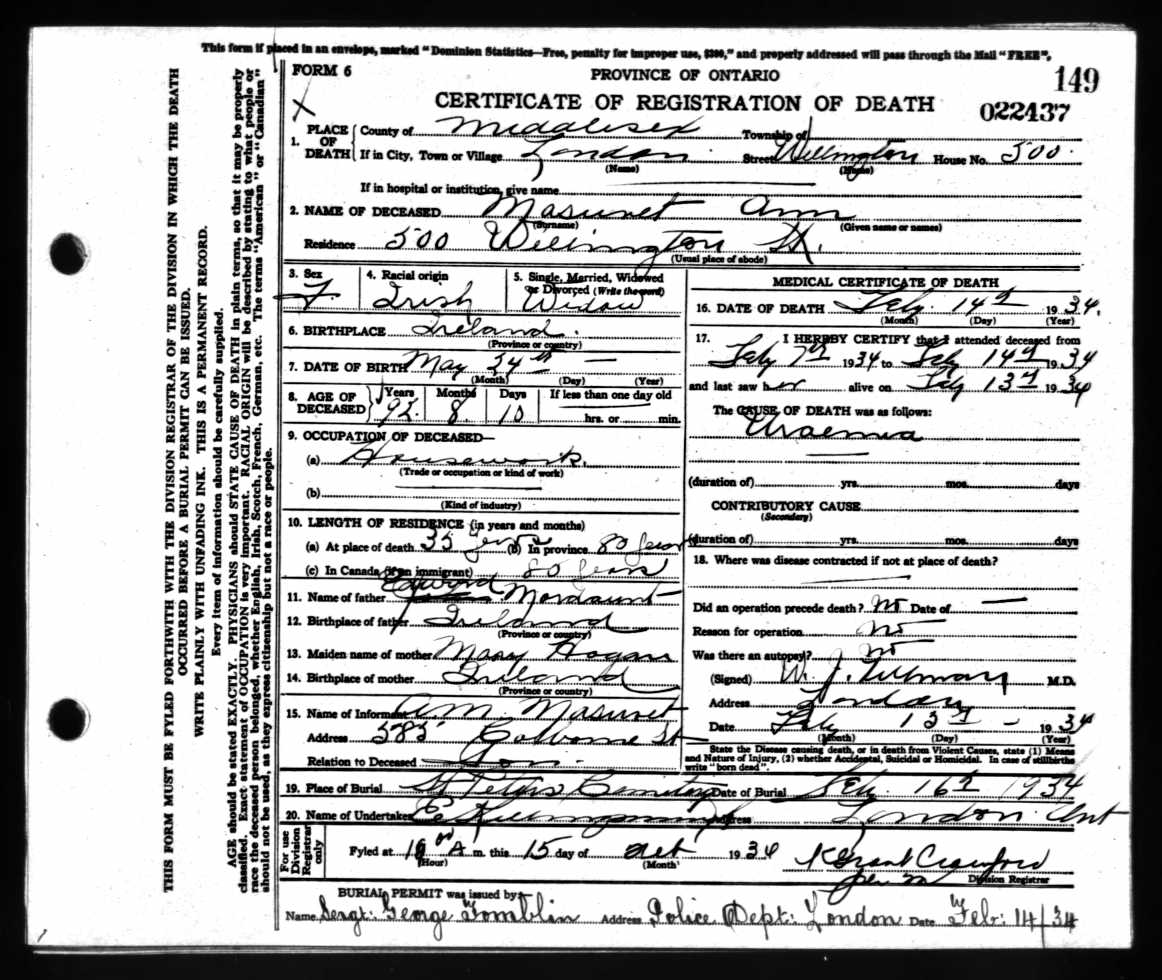 This form if placed in an envelope, marked "Dominion Statistics—Free, penalty for improper use, $300," and properly addressed will pass through the Mail "FREE".
FORM 6
PROVINCE OF ONTARIO
149
CERTIFICATE OF REGISTRATION OF DEATH
022437
1. PLACE OF DEATH County of Middlesex Township of
If in City, Town or Village London Street Wellington House No. 500
(Name) (Name)
If in hospital or institution, give name
2. NAME OF DECEASED Masuret Ann
(Surname) (Given name or names)
Residence 500 Wellington St.
(Usual place of abode)
3. Sex F.
4. Racial origin Irish
5. Single, Married, Widowed or Divorced (Write the word) Widow
6. BIRTHPLACE Ireland.
(Province or country)
7. DATE OF BIRTH May 24th —
(Month) (Day) (Year)
8. AGE OF DECEASED Years 92 Months 8 Days 10 If less than one day old
hrs. or min.
9. OCCUPATION OF DECEASED—
(a) Housework.
(Trade or occupation or kind of work)
(b)
(Kind of industry)
10. LENGTH OF RESIDENCE (in years and months)
(a) At place of death 35 years (b) In province 80 years
(c) In Canada (if an immigrant) 80 years
11. Name of father Edward Mordaunt
12. Birthplace of father Ireland
(Province or country)
13. Maiden name of mother Mary Hogan
14. Birthplace of mother Ireland
(Province or country)
15. Name of Informant Masuret
Address 585 Colborne St
Relation to Deceased Son.
MEDICAL CERTIFICATE OF DEATH
16. DATE OF DEATH Feby. 14th 1934.
(Month) (Day) (Year)
17. I HEREBY CERTIFY that I attended deceased from
Feby 7th 1934 to Feby 14th 1934
and last saw her alive on Feby 13th 1934
The CAUSE OF DEATH was as follows:
Uraemia
(duration of) yrs. mos. days
CONTRIBUTORY CAUSE
(Secondary)
(duration of) yrs. mos. days
18. Where was disease contracted if not at place of death?
Did an operation precede death? No Date of —
Reason for operation No
Was there an autopsy? No
(Signed) W. J. Tillmann M.D.
Address London
Date Feby 13th — 1934
(Month) (Day) (Year)
State the Disease causing death, or in death from Violent Causes, state (1) Means and Nature of Injury, (2) whether Accidental, Suicidal or Homicidal. In case of stillbirths write "born dead".
19. Place of Burial St Peters Cemetery Date of Burial Feby. 16th 1934
20. Name of Undertaker Address London Ont
For use Division Registrar only
Fyled at 10 A m. this 15 day of 1934
(Hour) (Month)
K Grant Crawford
Division Registrar
BURIAL PERMIT was issued by
Name Sergt: George Tomblin Address Police Dept: London Date Feb: 14/34
THIS FORM MUST BE FYLED FORTHWITH WITH THE DIVISION REGISTRAR OF THE DIVISION IN WHICH THE DEATH
OCCURRED BEFORE A BURIAL PERMIT CAN BE ISSUED.
WRITE PLAINLY WITH UNFADING INK. THIS IS A PERMANENT RECORD.
Every item of information should be carefully supplied.
AGE should be stated EXACTLY. PHYSICIANS should STATE CAUSE OF DEATH in plain terms, so that it may be properly
classified. Exact statement of OCCUPATION is very important. RACIAL ORIGIN will be described by stating to what people or
race the deceased person belonged, whether English, Irish, Scotch, French, German, etc. The terms "American" or "Canadian"
should not be used, as they express citizenship but not a race or people.